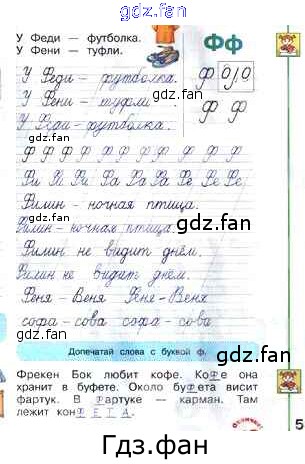 gdz.fan
У Феди — футболка.
У Фени — туфли.
Фф
У Феди – футболка.
Ф
У Фени – туфли
gdz.fan
gdz.fan
Ф Ф
У Феди – футболка.
gdz.fan
gdz.fan
Ф Ф Ф Ф Ф Ф Ф Ф Ф Ф Ф
Фи Фи Фи Фа Фа Фа Фе Фе Фе
Филин – ночная птица.
gdz.fan
Филин – ночная птица.
gdz.fan
Филин не видит днём.
Филин не видит днём.
Феня – Веня Феня – Веня
софа – сова софа – сова
gdz.fan
gdz.fan
Допечатай слова с буквой ф.
Фрекен Бок любит кофе. Кофе она
хранит в буфете. Около буфета висит
фартук. В фартуке — карман. Там
лежит конФЕТА.
gdz.fan
Отлично!
5
Гдз.фан